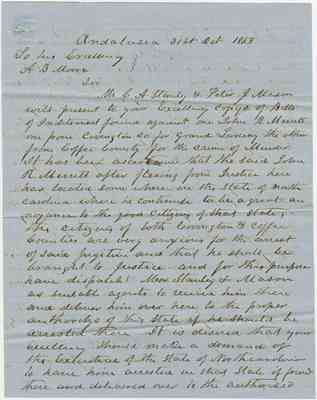 Andalusia 31st Oct 1858
To his Excellency
A B Moore
Sir
Mr C. A. Stanly & Peter J. Mason
will present to your Excellency copies of Bills
of Indictment found against one John R Merritt
one from Covington Co for Grand Larceny the other
from Coffee County for the crime of Murder
It has been ascertained that the said John
R. Merritt after fleeing from Justice here
has located some where in the State of North
Carolina where he continues to be a great an
noyance to the good citizens of that State,
The citizens of both Covington & Coffee
Counties are very anxious for the arrest
of said fugitive and that he shall be
brought to Justice and for this purpose
have dispatched Messrs Stanley & Mason
as suitable agents to receive him there
and deliver him over here to the proper
authorities of this State if he should be
arrested there It is desired that your
excellency should make a demand of
the Executive of the State of North Carolina
to have him arrested in that State if found
there and delivered over to the authorised